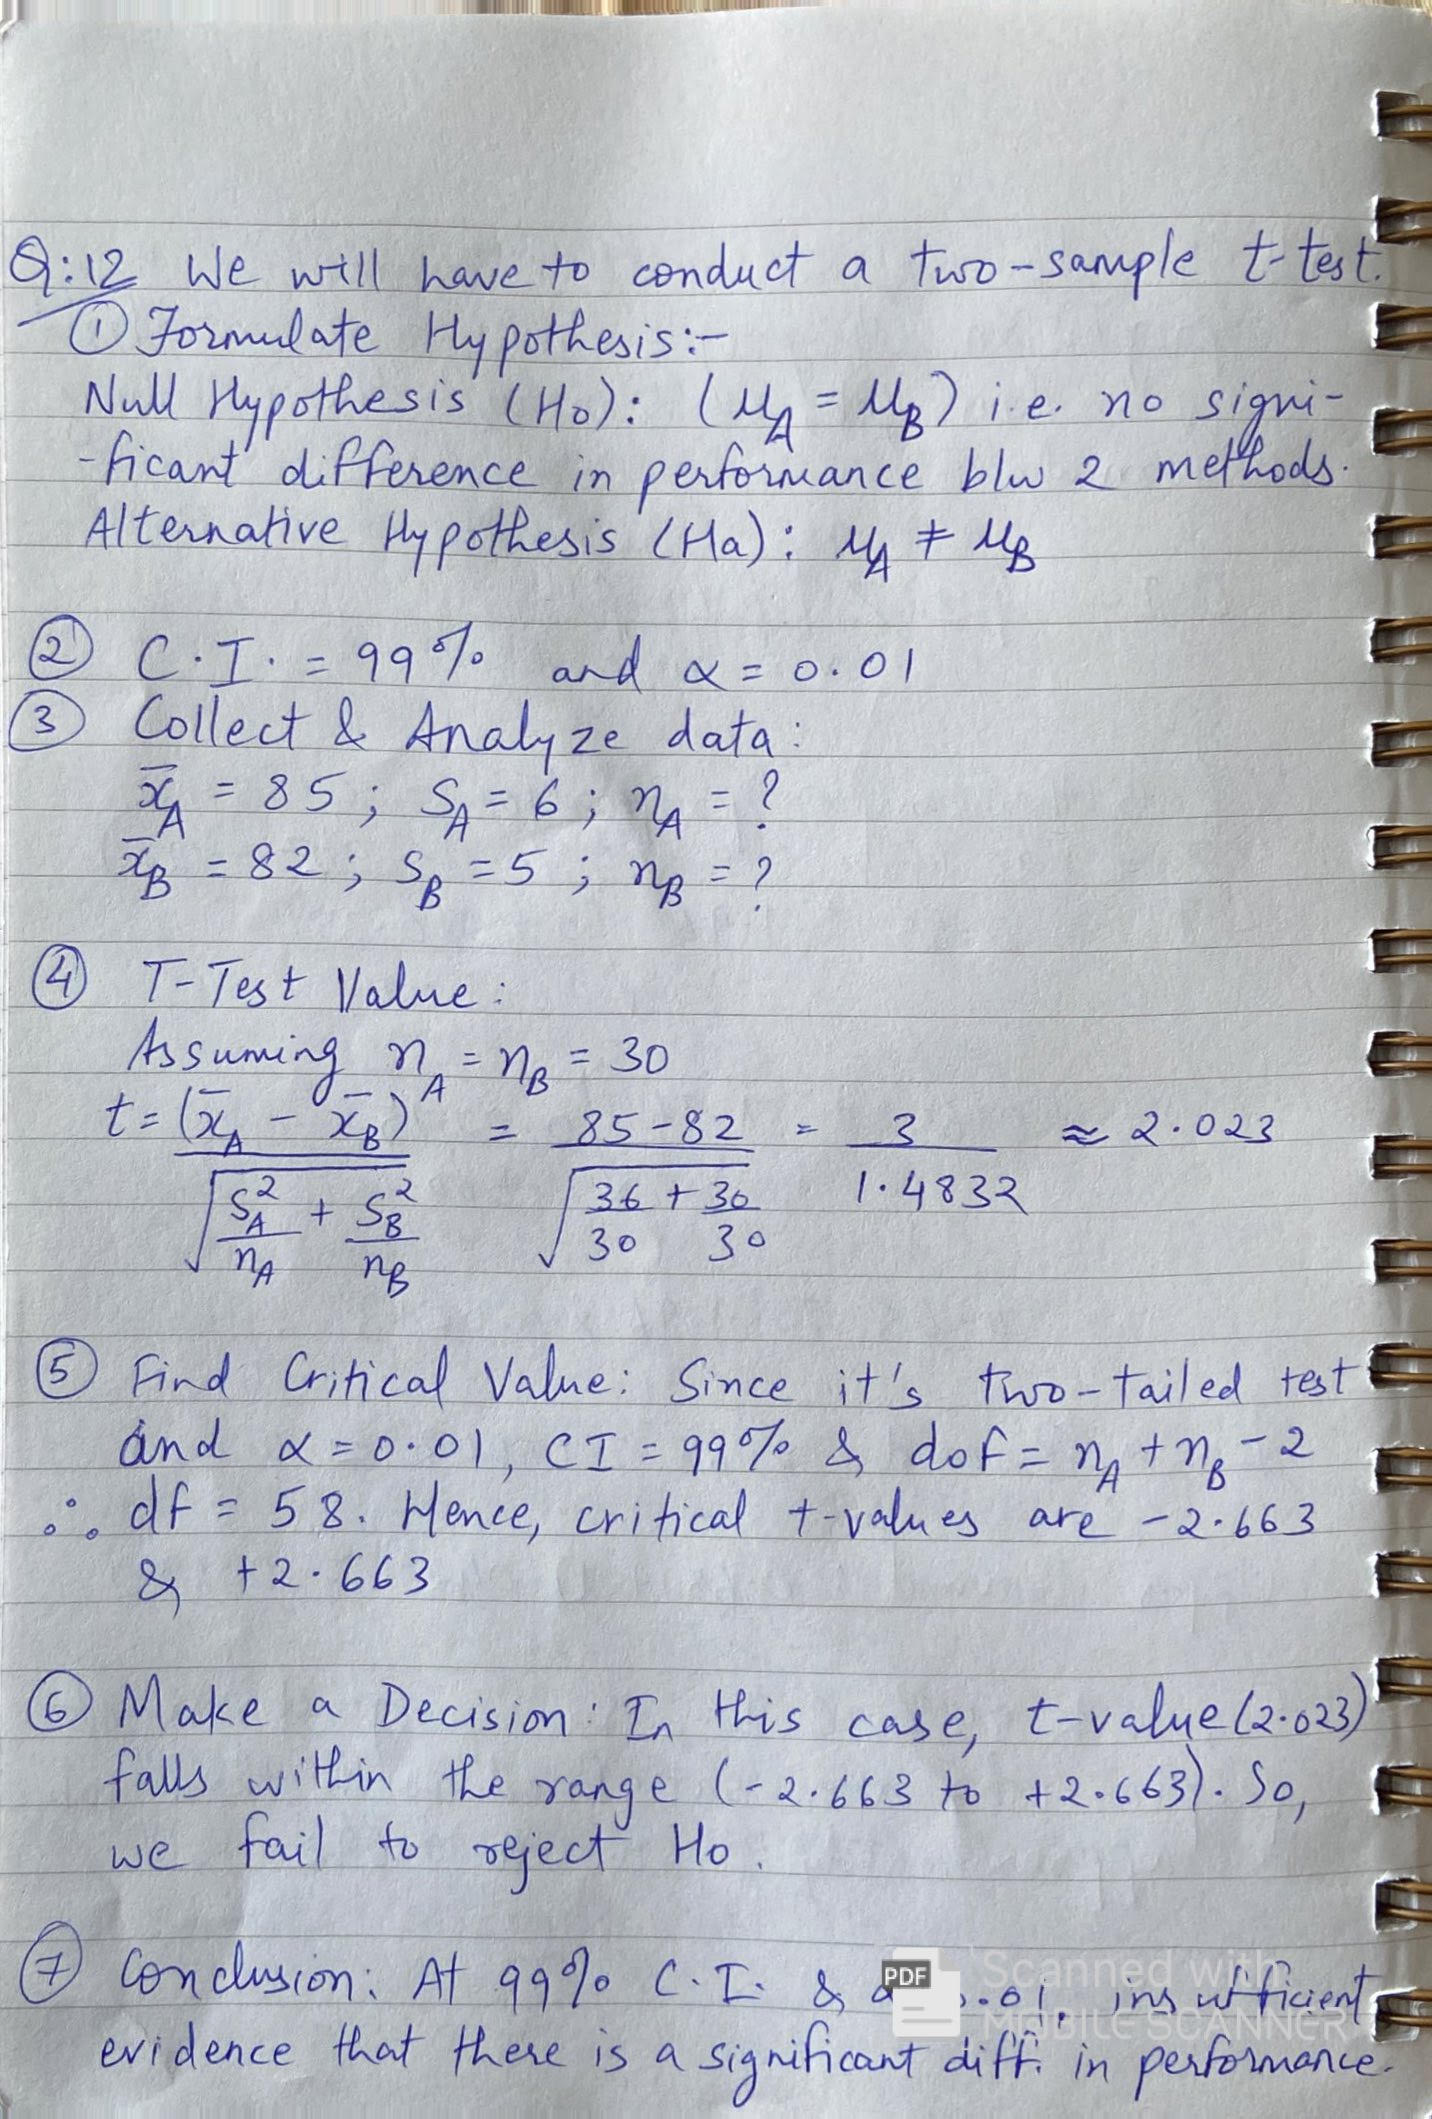 Q:12 We will have to conduct a two-sample t-test.
① Formulate Hypothesis:-
Null Hypothesis (Ho): (μA = μB) i.e. no signi-
-ficant difference in performance b/w 2 methods.
Alternative Hypothesis (Ha): μA ≠ μB
② C.I. = 99% and α = 0.01
③ Collect & Analyze data:
x̄A = 85; SA = 6; nA = ?
x̄B = 82; SB = 5; nB = ?
④ T-Test Value:
Assuming nA = nB = 30
t = (x̄A - x̄B) / √(SA²/nA + SB²/nB) = 85-82 / √(36/30 + 30/30) = 3 / 1.4832 ≈ 2.023
⑤ Find Critical Value: Since it's two-tailed test
and α = 0.01, CI = 99% & dof = nA + nB - 2
∴ df = 58. Hence, critical t-values are -2.663
& +2.663
⑥ Make a Decision: In this case, t-value (2.023)
falls within the range (-2.663 to +2.663). So,
we fail to reject Ho.
⑦ Conclusion: At 99% C.I. & .01, insufficient
evidence that there is a significant diff. in performance.
PDF
Scanned with
MOBILE SCANNER